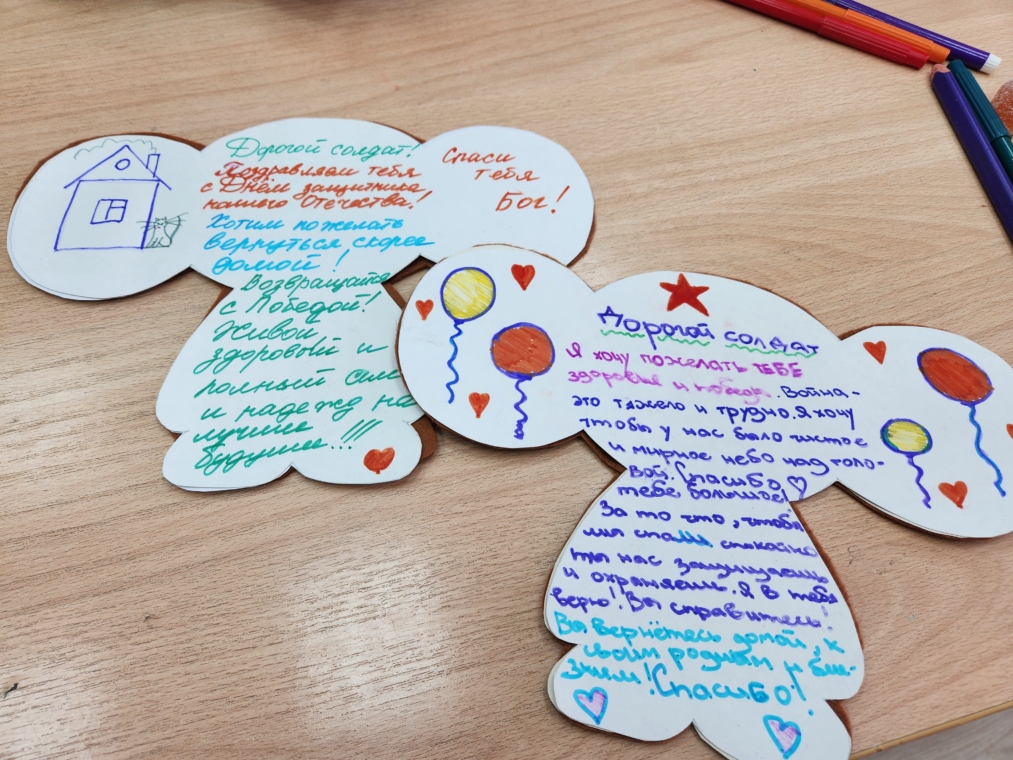 Дорогой солдат!
Поздравляем тебя
с Днём защитника
нашего Отечества!
Хотим пожелать
вернуться скорее
домой!
Возвращайся
с Победой!
Живой
здоровый и
полный сил
и надежд на
лучшее
будущее!!!
Спаси
тебя
Бог!
Дорогой солдат
Я хочу пожелать ТЕБЕ
здоровья и победы. Война-
это тяжело и трудно. Я хочу
чтобы у нас было чистое
и мирное небо над голо-
вой. Спасибо
тебе большое!
За то что, чтобы
мы спали спокойно
ты нас защищаешь
и охраняешь. Я в тебя
верю! Вы справитесь!
Вы вернётесь домой, к
своим родным и бли-
зким! Спасибо!